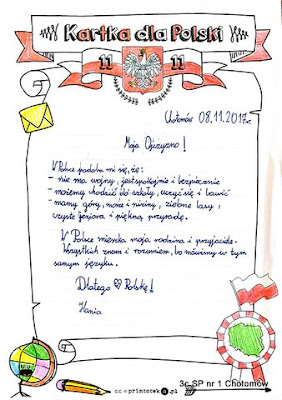 Kartka dla Polski
11 11
Chotomów 08.11.2017r.
Moja Ojczyzno!
W Polsce podoba mi się, że:
- nie ma wojny, jest spokojnie i bezpiecznie
- możemy chodzić do szkoły, uczyć się i bawić
- mamy góry, morze i niziny, zielone lasy,
czyste jeziora i piękną przyrodę.
W Polsce mieszka moja rodzina i przyjaciele.
Wszystkich znam i rozumiem, bo mówimy w tym
samym języku.
Dlatego ♡ Polskę!
Hania
3c SP nr 1 Chotomów
printoteka.pl